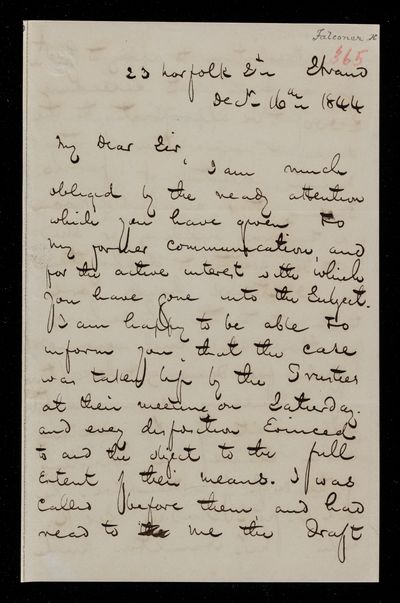 Falconer H
365
23 Norfolk Str Strand
Decr 16th 1844
My Dear Sir
I am much
obliged by the ready attention
which you have given to
my former communication, and
for the active interest with which
you have gone into the Subject.
I am happy to be able to
inform you, that the case
was taken up by the Trustees
at their meeting on Saturday.
and every disposition Evinced
to aid the object to the full
Extent of their means. I was
called before them and had
read to me the Draft